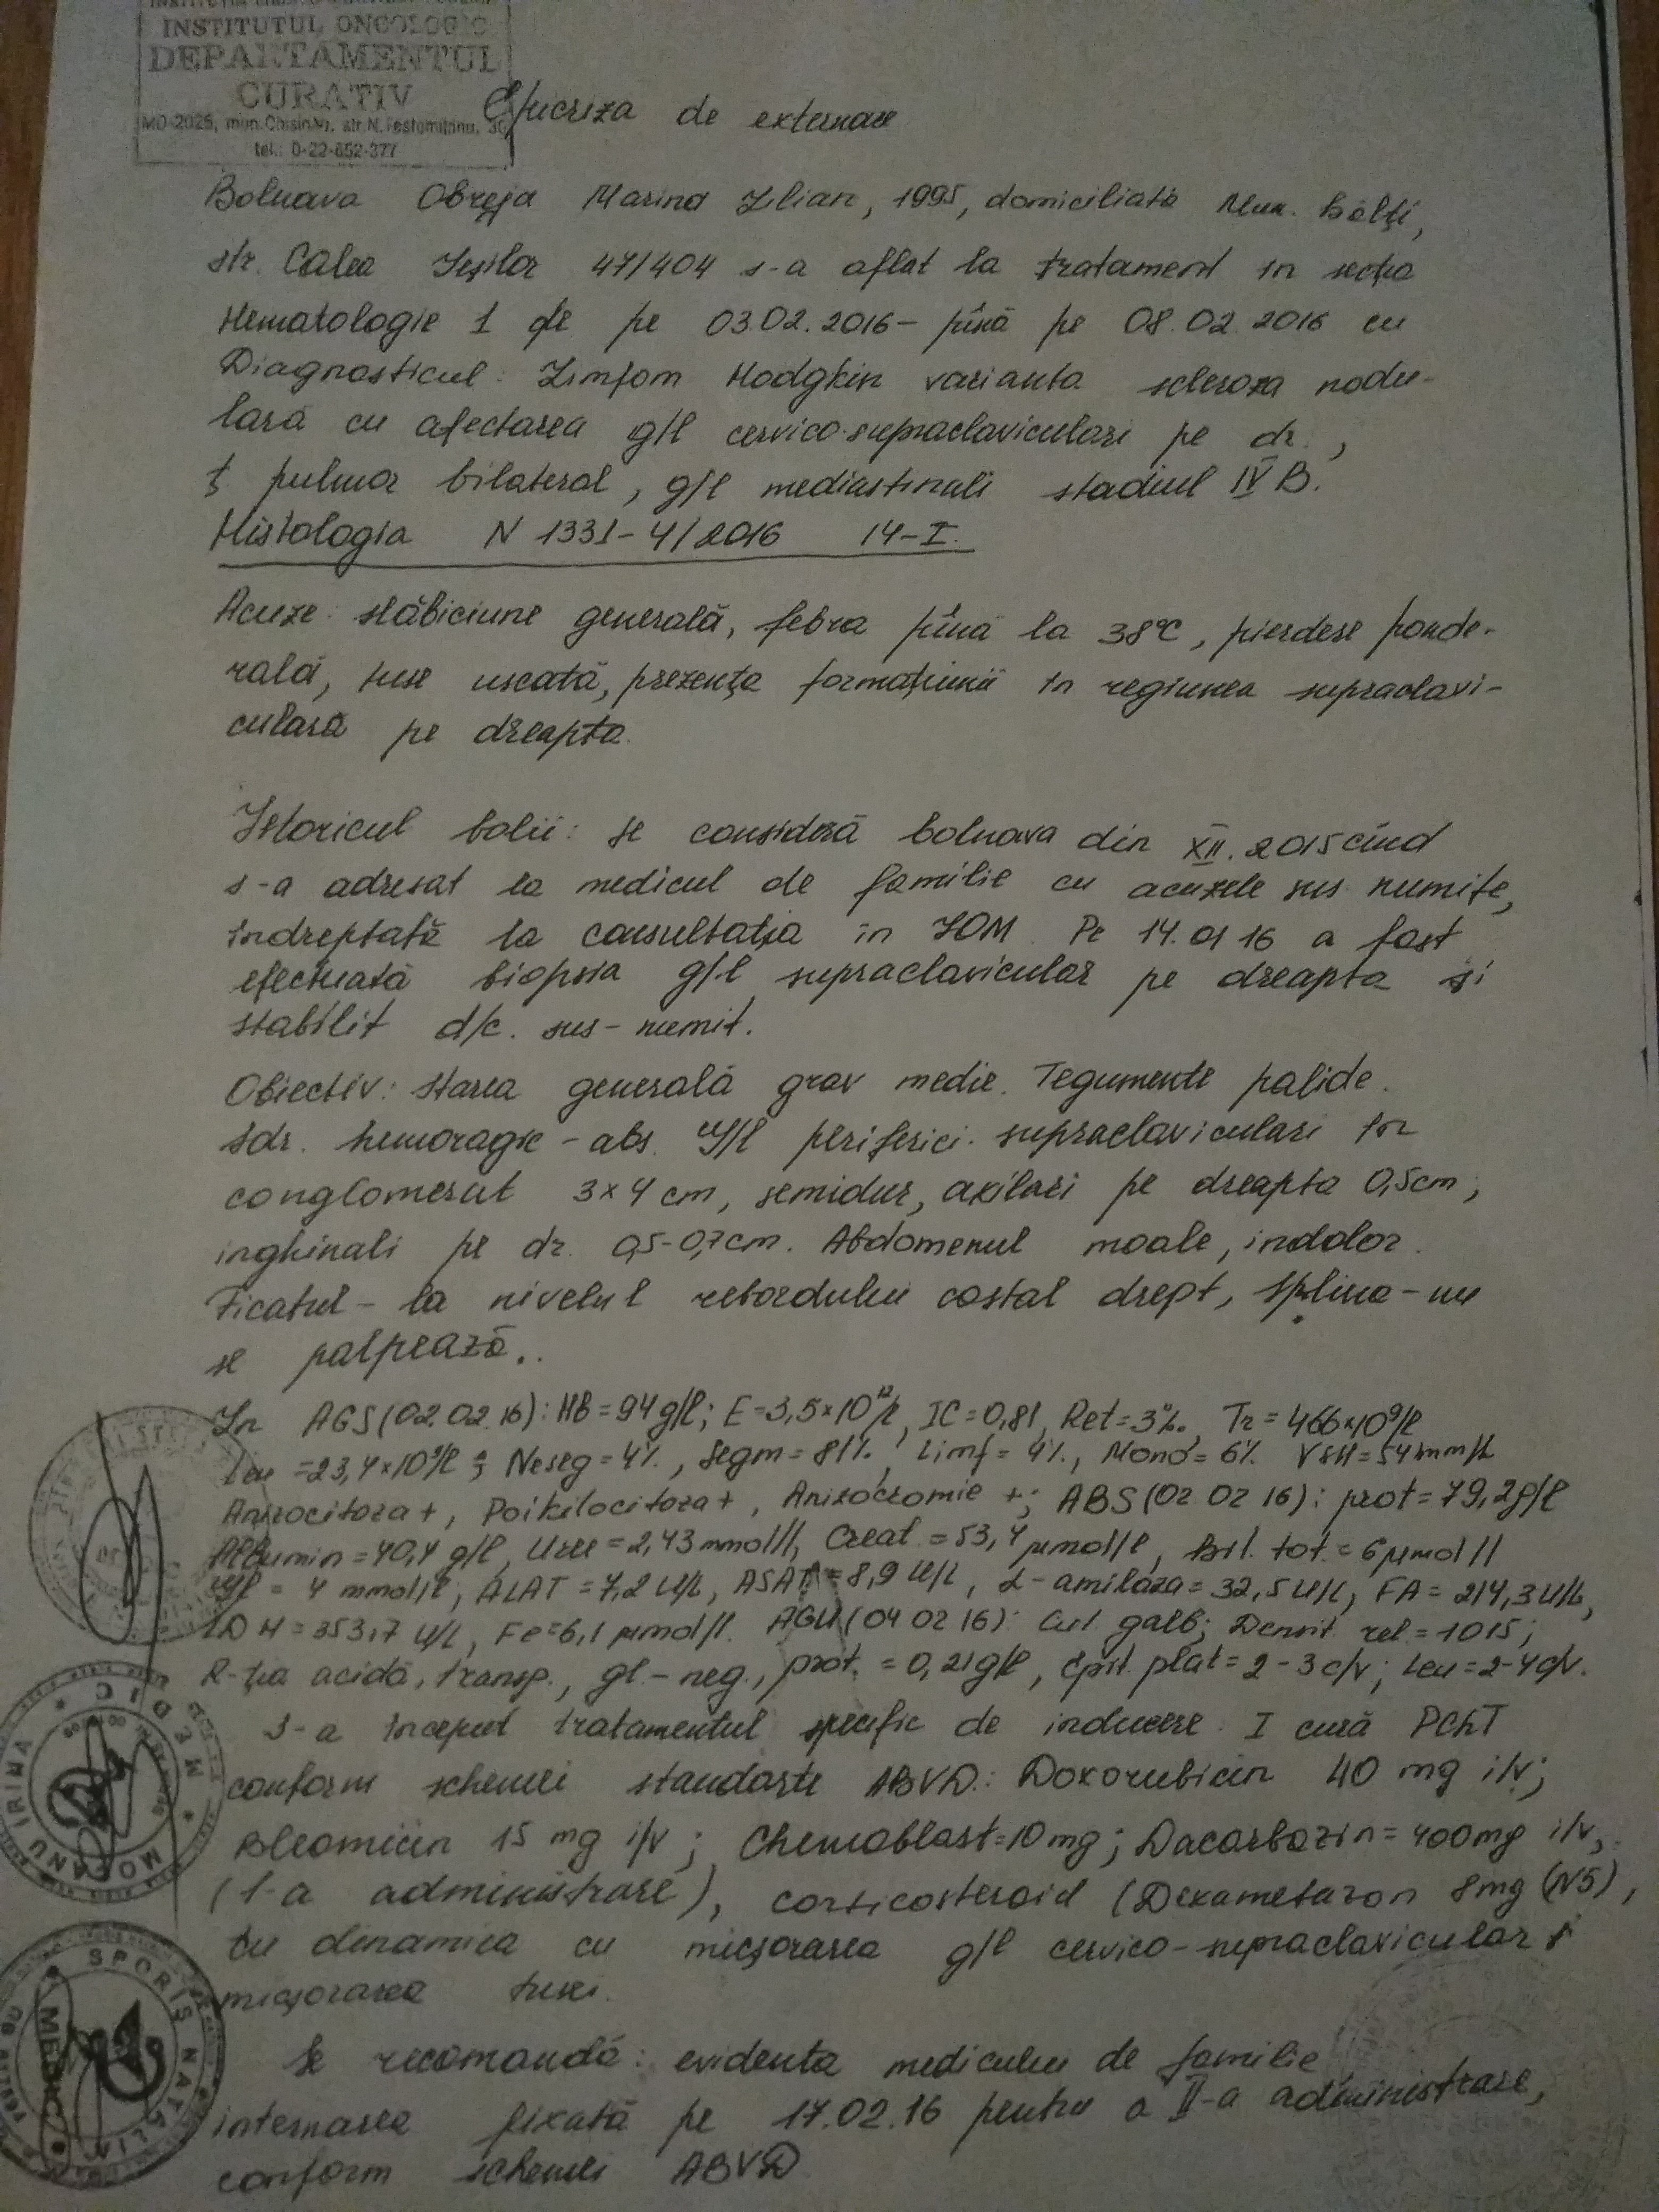 INSTITUTUL ONCOLOGIC
DEPARTAMENTUL
CURATIV
MD-2025, mun. Chișinău, str. N. Testemițanu, 30
tel.: 0-22-852-377
Epicriza de externare
Bolnava Obreja Marina Ilian, 1995, domiciliată Mun. Bălți,
str. Calea Ieșilor 47/404 s-a aflat la tratament în secția
Hematologie 1 de pe 03.02.2016 - pînă pe 08.02.2016 cu
Diagnosticul: Limfom Hodgkin varianta scleroza nodu-
lară cu afectarea g/l cervico-supraclaviculari pe dr.,
ț. pulmor bilateral, g/l mediastinali stadiul IV B.
Histologia N 1331-4/2016 14-I.
Acuze: slăbiciune generală, febra pînă la 38°C, pierdere ponde-
rală, tuse uscată, prezența formațiunii în regiunea supraclavi-
culară pe dreapta.
Istoricul bolii: se consideră bolnava din XII. 2015 cînd
s-a adresat la medicul de familie cu acuzele sus numite,
îndreptată la consultația în IOM. Pe 14.01 16 a fost
efectuată biopsia g/l supraclavicular pe dreapta și
stabilit d/c. sus-numit.
Obiectiv: starea generală grav medie. Tegumente palide.
Sdr. hemoragic - abs. G/l periferici: supraclaviculari în
conglomerat 3x4 cm, semidur, axilari pe dreapta 0,5cm,
inghinali pe dr. 0,5-0,7cm. Abdomenul moale, indolor.
Ficatul - la nivelul rebordului costal drept, Splina - nu
se palpează..
In AGS (02.02.16): HB = 94 g/l; E=3,5x10¹²/l, IC=0,81, Ret=3‰, Tr=466x10⁹/l
Leu =23,4x10⁹/l; Neseg=4%, Segm=81%, Limf=9%, Mono=6% VSH=54mm/h
Anizocitoza+, Poikilocitoza+, Anizocromie +; ABS (02 02 16): prot=79,2g/l
Albumin=40,4 g/l, Uree=2,43 mmol/l, Creat.=53,4 µmol/l, Bil. tot.=6µmol/l
Gl = 4 mmol/l, ALAT=7,2 U/L, ASAT=8,9 U/L, α-amilaza=32,5U/L, FA=214,3U/L,
LDH=353,7 U/L, Fe=6,1 µmol/l. AGU (04 02 16): Cul. galb; Densit. rel=1015;
R-ția acidă, transp., gl-neg., prot.=0,21g/l, Epit. plat=2-3 c/v; Leu=2-4c/v.
S-a început tratamentul specific de inducere. I cură PChT
conform schemei standarte ABVD: Doxorubicin 40 mg i/v;
Bleomicin 15 mg i/v; Chemoblast=10mg; Dacarbazin=400mg i/v,
(1-a administrare), corticosteroid (Dexametazon 8mg (N5),
cu dinamica cu micșorarea g/l cervico-supraclavicular și
micșorarea tusei.
Se recomandă: evidența medicului de familie
internarea fixată pe 17.02.16 pentru a II-a administrare,
conform schemei ABVD
MEDIC
MOFANU IRINA
SPORIȘ NATALIA
MEDIC